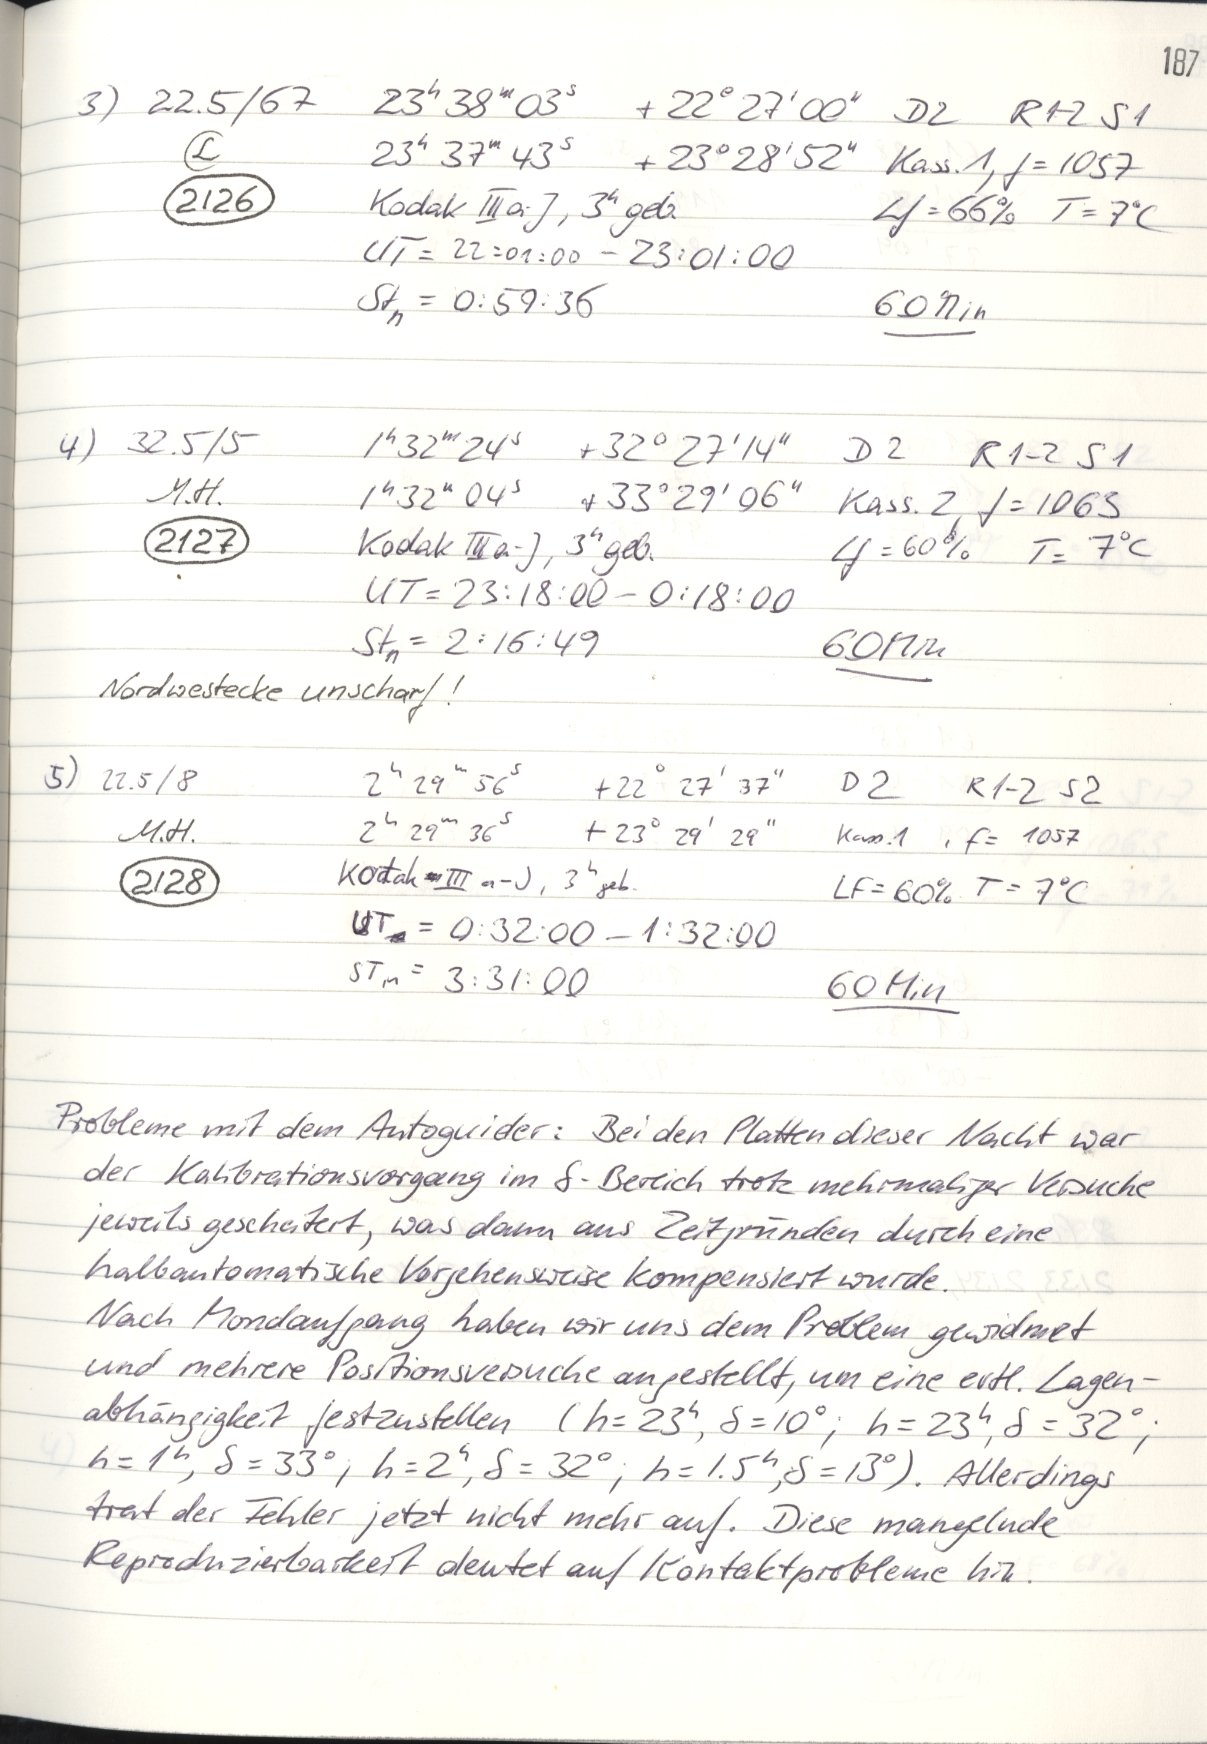 187
3) 22.5/67 23h 38m 03s +22° 27' 00" D2 R1-2 S1
L 23h 37m 43s +23° 28' 52" Kass. 1, f = 1057
2126 Kodak IIIa-J, 3h geb. Lf = 66% T = 7°C
UT = 22:01:00 - 23:01:00
Stn = 0:59:36 60 Min
4) 32.5/5 1h 32m 24s +32° 27' 14" D2 R1-2 S1
M.H. 1h 32m 04s +33° 29' 06" Kass. 2, f = 1063
2127 Kodak IIIa-J, 3h geb. Lf = 60% T = 7°C
UT = 23:18:00 - 0:18:00
Stn = 2:16:49 60 Min
Nordwestecke unscharf!
5) 22.5/8 2h 29m 56s +22° 27' 37" D2 R1-2 S2
M.H. 2h 29m 36s +23° 29' 29" Kass. 1, f = 1057
2128 Kodak III a-J, 3h geb. LF = 60% T = 7°C
UT = 0:32:00 - 1:32:00
STm = 3:31:00 60 Min
Probleme mit dem Autoguider: Bei den Platten dieser Nacht war
der Kalibrationsvorgang im δ-Bereich trotz mehrmaliger Versuche
jeweils gescheitert, was dann aus Zeitgründen durch eine
halbautomatische Vorgehensweise kompensiert wurde.
Nach Mondaufgang haben wir uns dem Problem gewidmet
und mehrere Positionsversuche angestellt, um eine evtl. Lagen-
abhängigkeit festzustellen (h = 23h, δ = 10°; h = 23h, δ = 32°;
h = 1h, δ = 33°; h = 2h, δ = 32°; h = 1.5h, δ = 13°). Allerdings
trat der Fehler jetzt nicht mehr auf. Diese mangelnde
Reproduzierbarkeit deutet auf Kontaktprobleme hin.